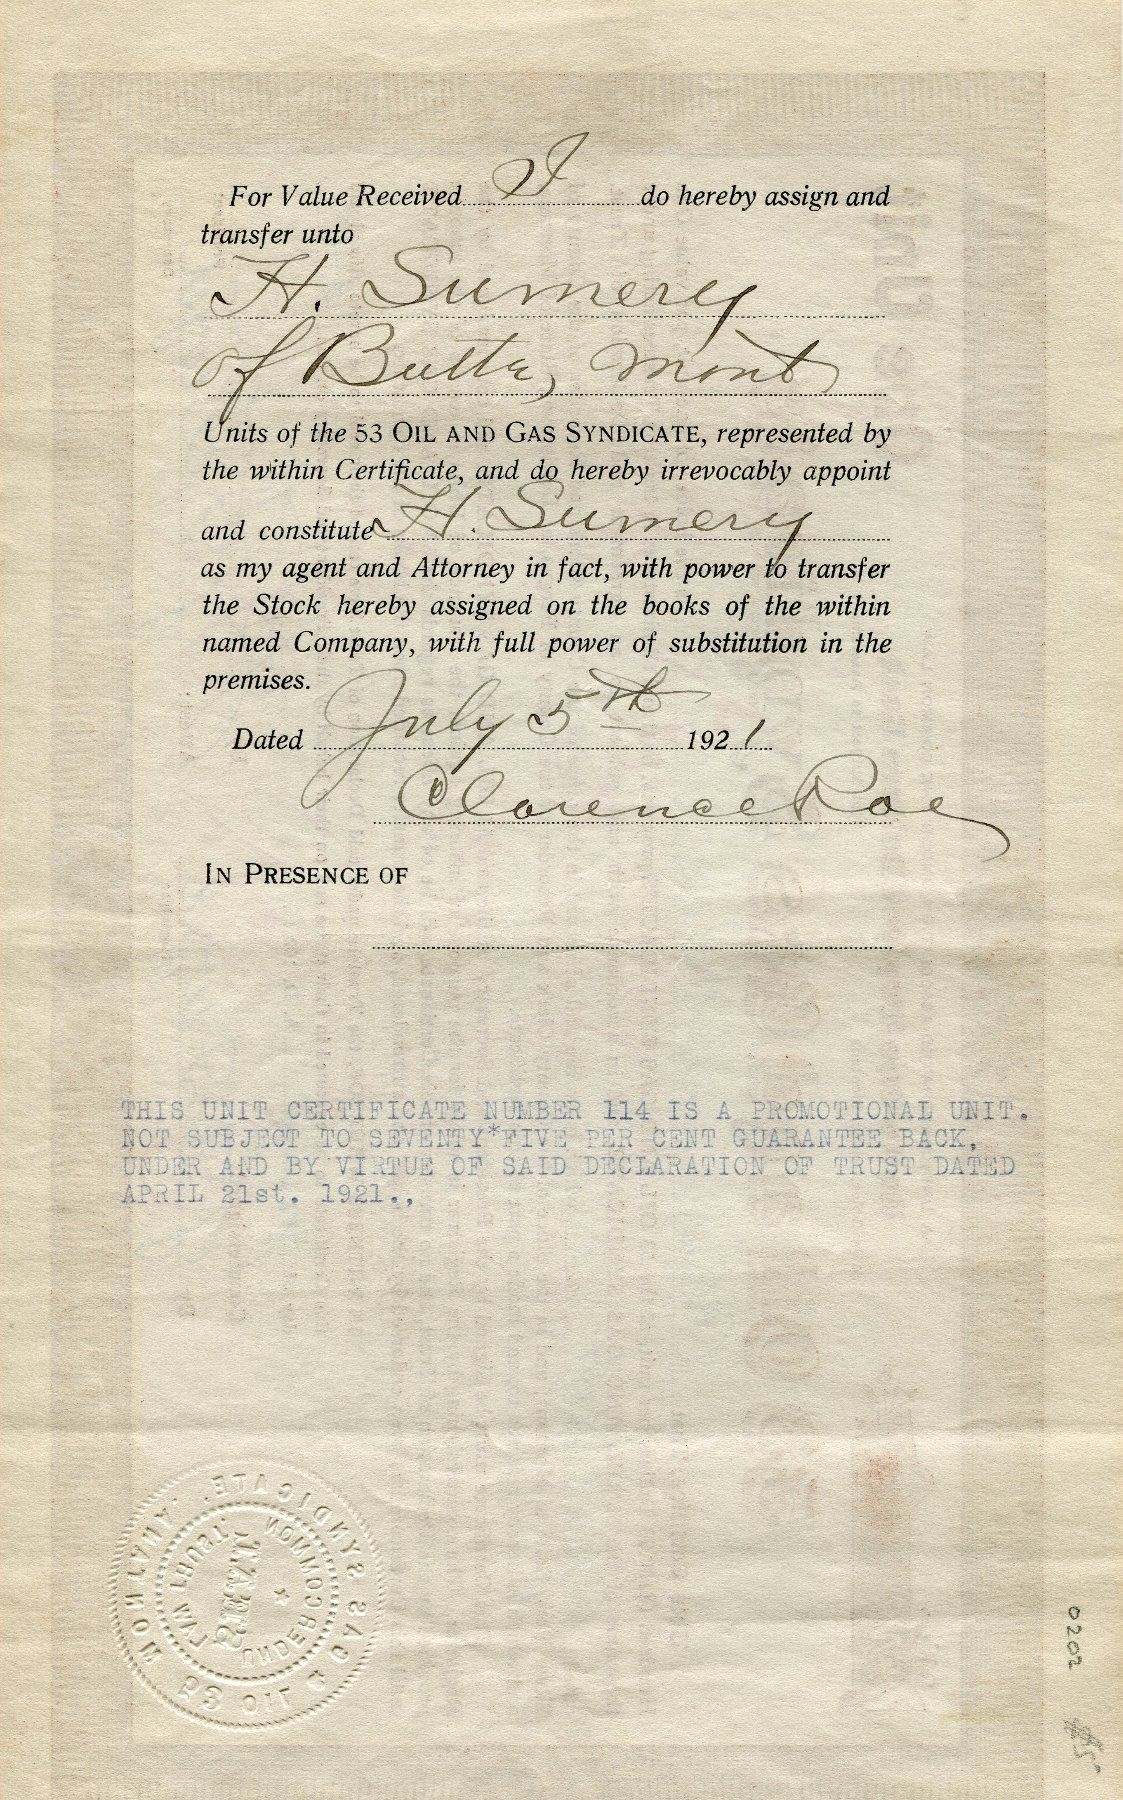 For Value Received I do hereby assign and
transfer unto
H. Sumery
of Butte, Mont
Units of the 53 OIL AND GAS SYNDICATE, represented by
the within Certificate, and do hereby irrevocably appoint
and constitute H. Sumery
as my agent and Attorney in fact, with power to transfer
the Stock hereby assigned on the books of the within
named Company, with full power of substitution in the
premises.
Dated July 5th 1921
Clarence Roe
IN PRESENCE OF
THIS UNIT CERTIFICATE NUMBER 114 IS A PROMOTIONAL UNIT.
NOT SUBJECT TO SEVENTY*FIVE PER CENT GUARANTEE BACK,
UNDER AND BY VIRTUE OF SAID DECLARATION OF TRUST DATED
APRIL 21st. 1921.,
53 OIL & GAS SYNDICATE. MONTANA.
UNDER COMMON LAW TRUST.
0202